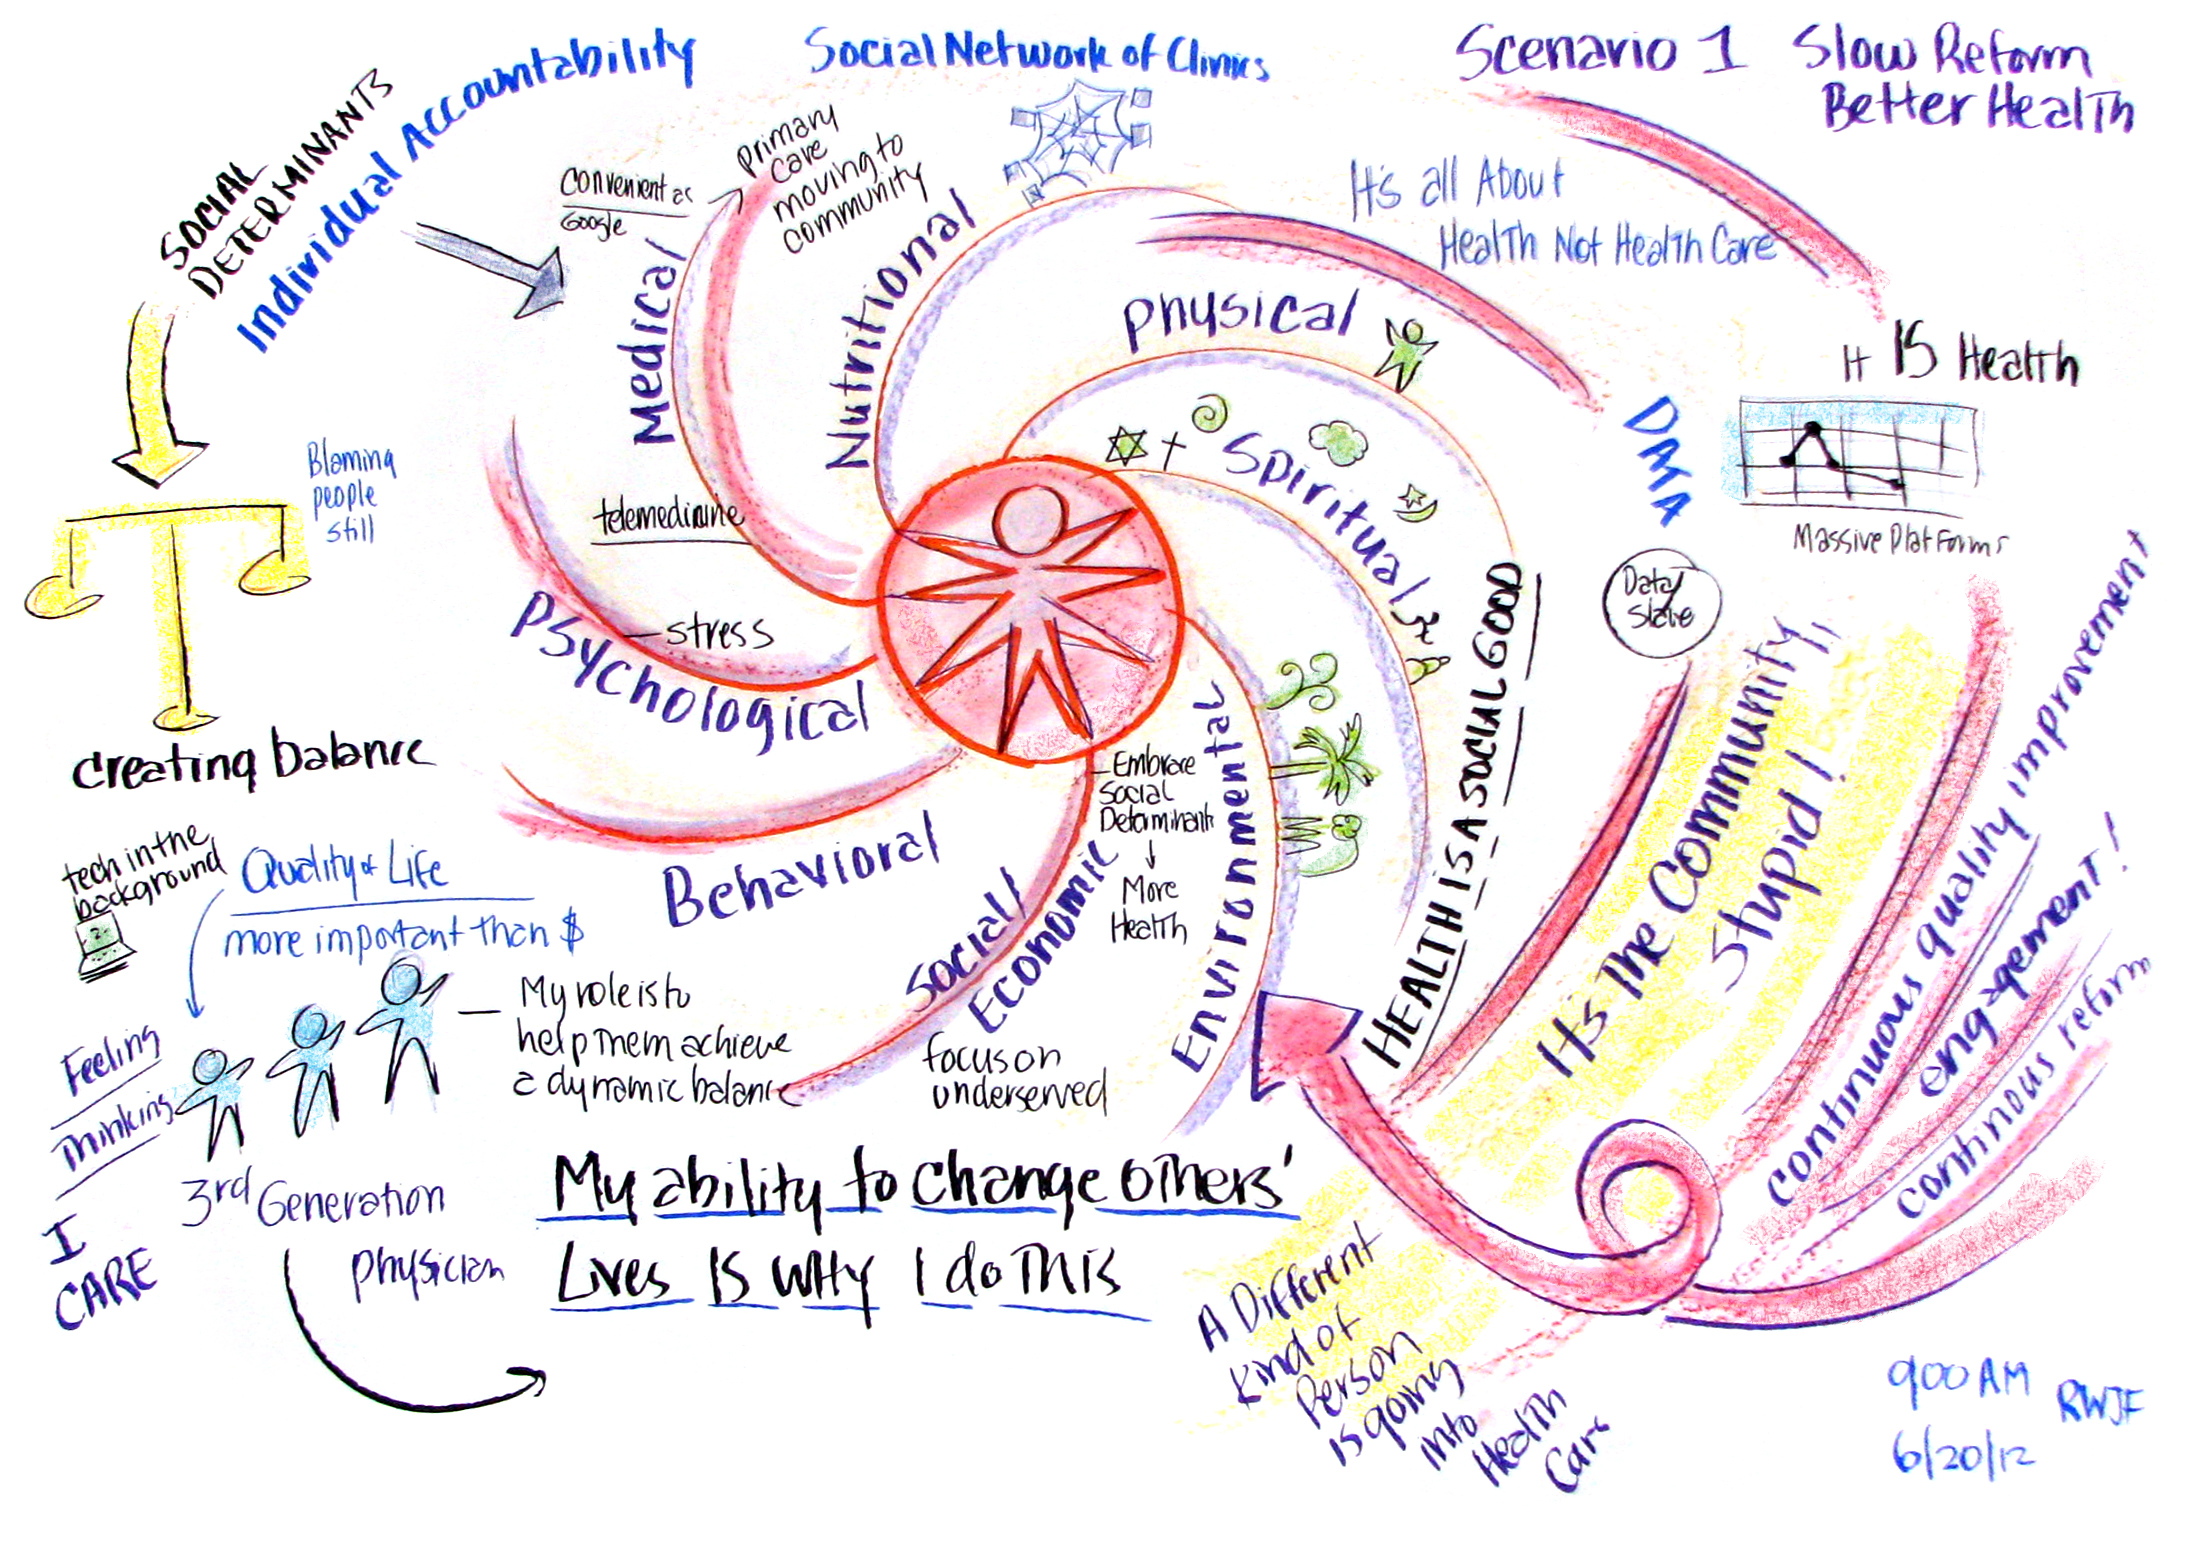 Scenario 1 Slow Reform
Better Health
Social Network of Clinics
SOCIAL
DETERMINANTS
Individual Accountability
Convenient as
Google
primary
care
moving to
community
Medical
Nutritional
It's all About
Health Not Health Care
physical
Spiritual
It IS Health
DATA
Massive Platforms
Blaming
people
still
telemedinine
stress
Psychological
creating balance
Behavioral
Social/
Economic
Embrace
Social
Determinants
More
Health
Environmental
HEALTH IS A SOCIAL GOOD
It's The Community,
Stupid!
continuous quality improvement
engagement!
continous reform
tech in the
background
Quality of Life
more important than $
My role is to
help Them achieve
a dynamic balance
focus on
underserved
Feeling
Thinking
I
CARE
3rd Generation
physician
My ability to change others'
Lives IS WHY I do This
A Different
kind of
Person
is going
into
Health
Care
900 AM
6/20/12
RWJF